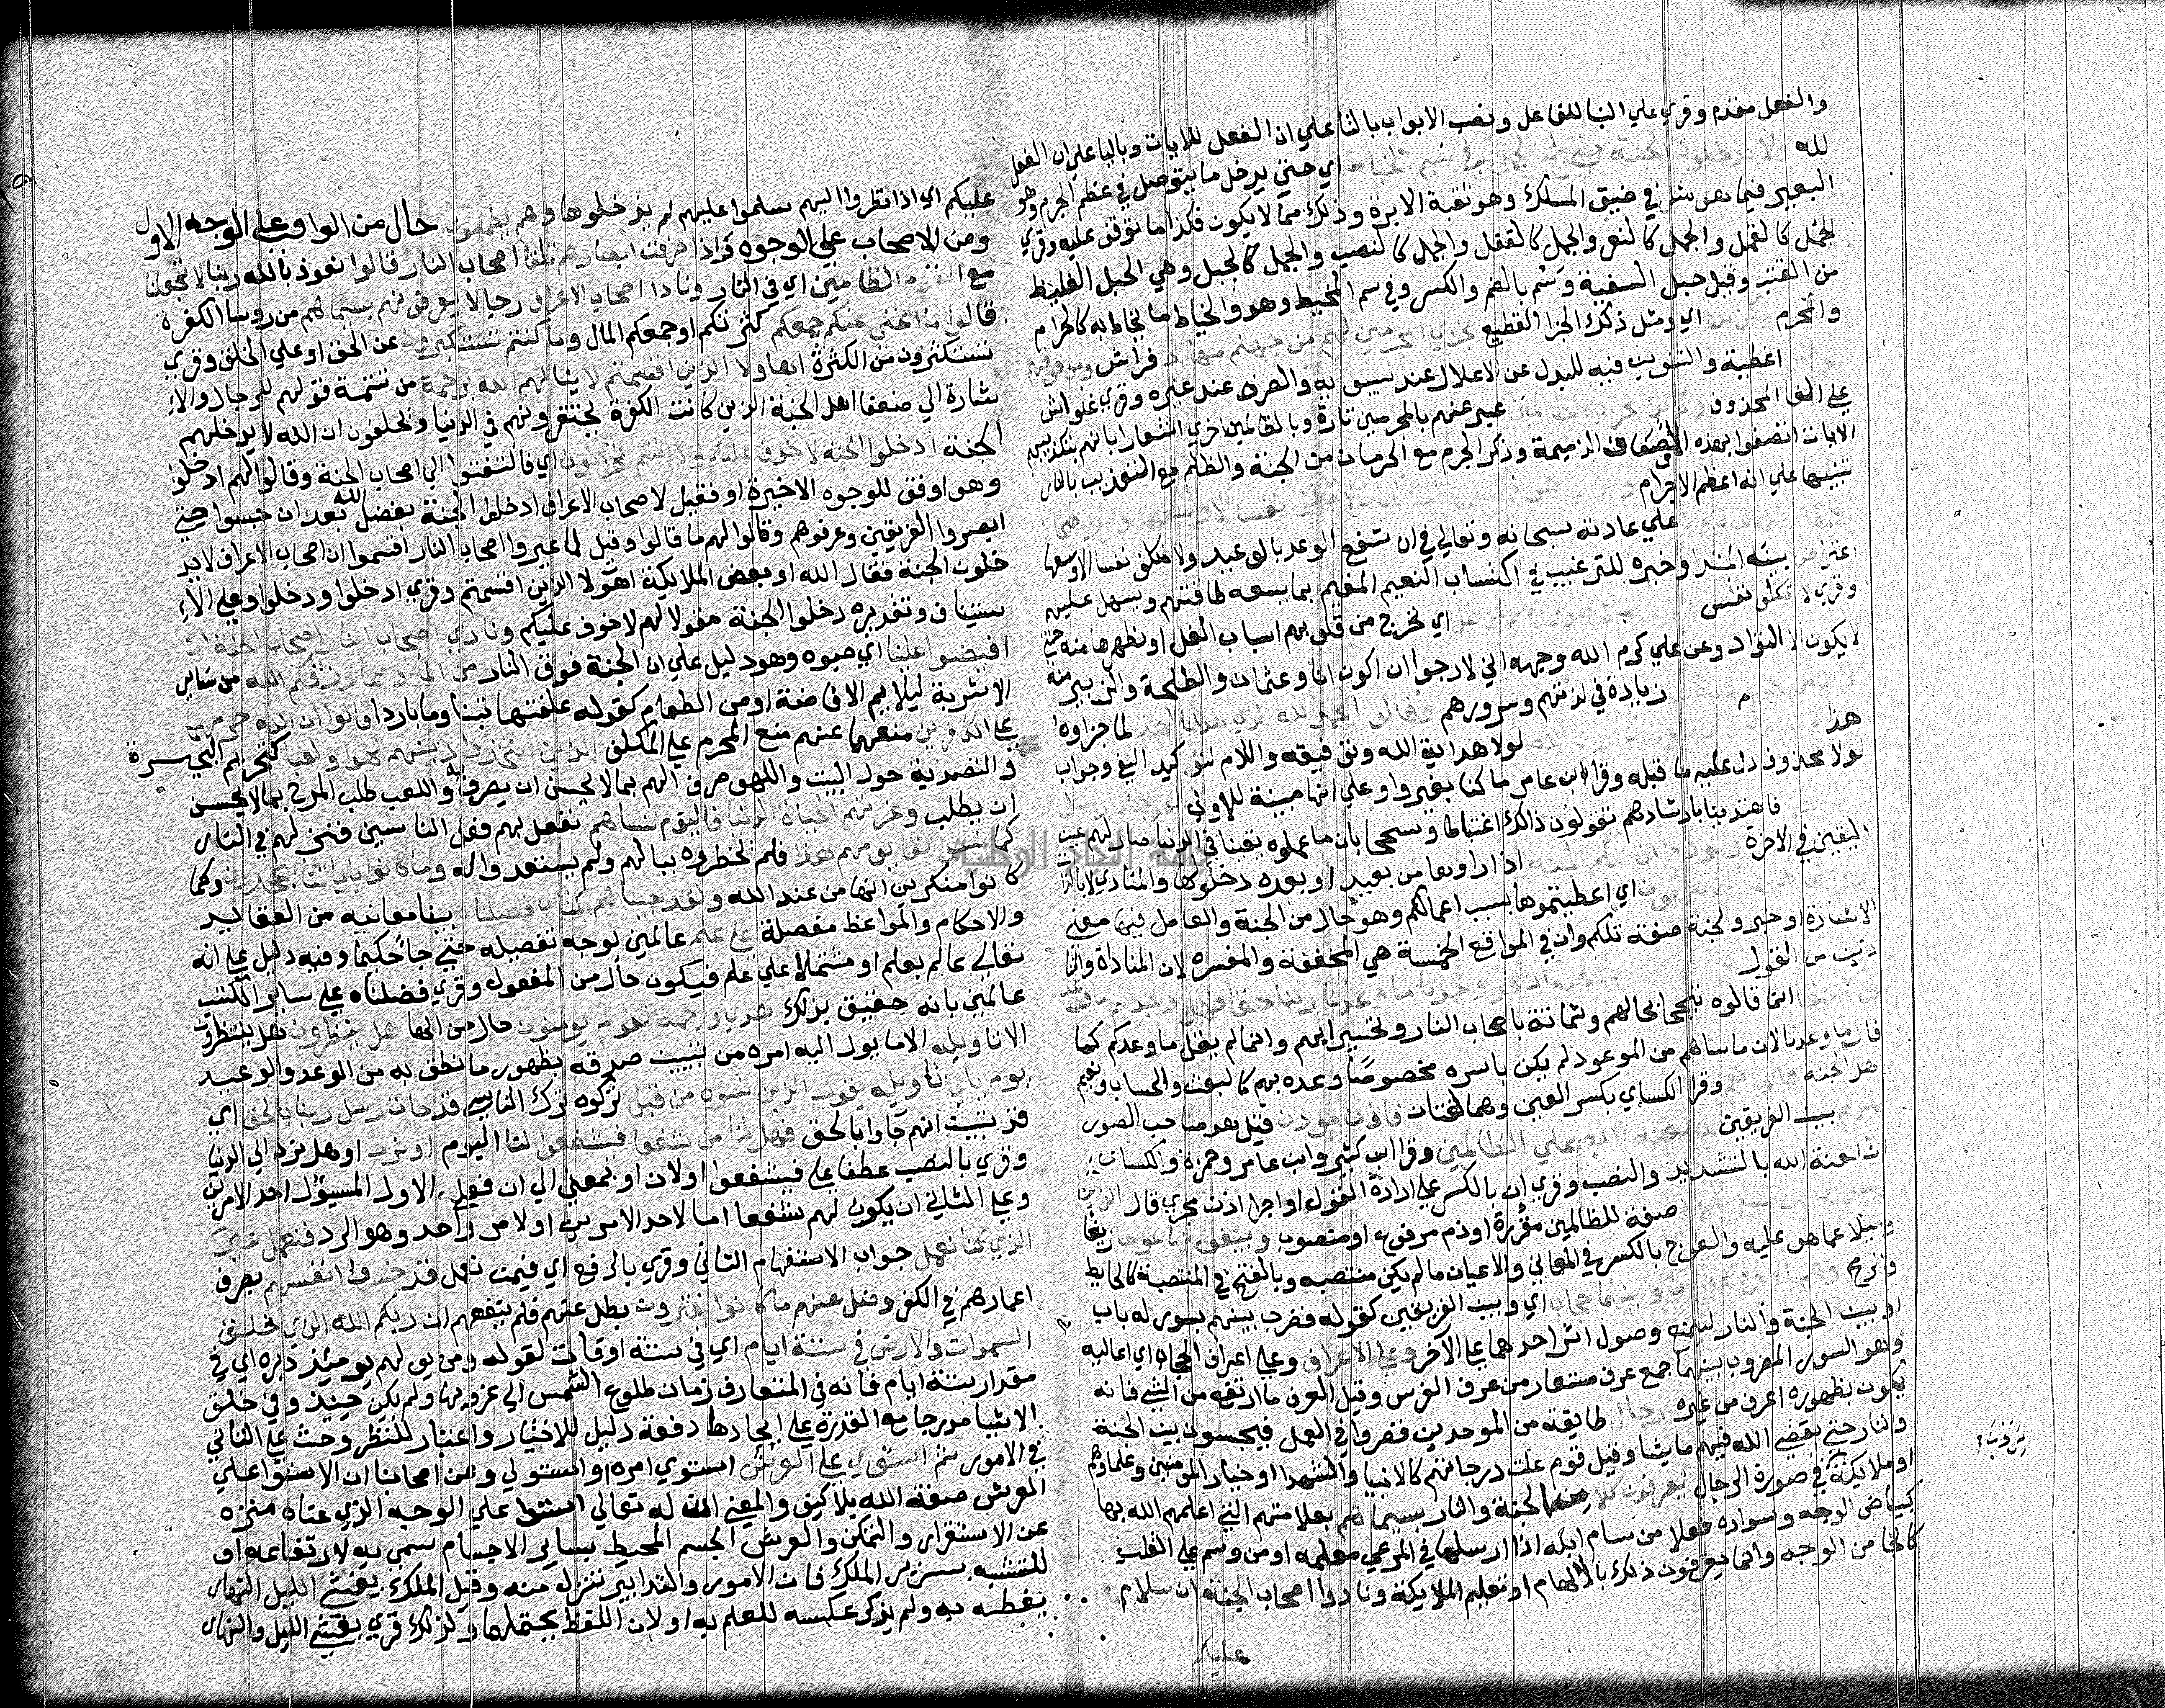 والفعل مقدم وقري علي البنا للفاعل ونصب الابواب بالتا علي ان الفعل للايات وباليا علي ان الفعل
لله ولا يدخلون الجنة حتي يلج الجمل في سم الخياط اي حتي يدخل ما يتوصل في عظم الجرم وهو
البعير فيما هو مثل في ضيق المسلك وهو ثقبة الابرة وذلك مما لا يكون فكذا ما توقف عليه وقري
الجمل كالقمل والجمل كالنغر والجمل كالقفل والجمل كالنصب والجمل كالحبل وهي الحبل الغليظ
من القنب وقيل حبل السفينة وسم بالضم والكسر وفي سم المخيط وهو والخياط ما يخاط به كالحزام
والمحزم وكذلك اي ومثل ذلك الجزا الفظيع نجزي المجرمين لهم من جهنم مهاد فراش ومن فوقهم
غواش اغطية والتنوين فيه للبدل عن الاعلال عند سيبويه والصرف عند غيره وقري غواش
علي الغا المحذوف وكذلك نجزي الظالمين عبر عنهم بالمجرمين تارة وبالظالمين اخري اشعارا بانهم بتكذيبهم
الايات اتصفوا بهذه الاوصاف الذميمة وذكر الجرم مع الحرمان من الجنة والظلم مع التعذيب بالنار
تنبيها علي انه اعظم الاجرام لا نكلف نفسا الا وسعها
علي عادته سبحانه وتعالي في ان شفع الوعد بالوعيد ولا نكلف نفسا الا وسعها
اعتراض بين المبتدا وخبره للترغيب في اكتساب النعيم المقيم بما يسعه طاقتهم ويسهل عليهم
وقري لا تكلف نفس اي نخرج من قلوبهم اسباب الغل او نطهرها منه حتي
لا يكون الا التواد وعن علي كرم الله وجهه اني لارجوا ان اكون انا وعثمان والطلحة والزبير منه
زيادة في لذتهم وسرورهم وقالوا الحمد لله الذي هدانا لهذا لما جزاوه
هذا لولا هداية الله وتوفيقه واللام لتوكيد النفي وجواب
لولا محذوف دل عليه ما قبله وقرا ابن عامر ما كنا بغير واو علي انها مبينة للاولي لقد جات رسل
فاهتدينا بارشادهم تقولون ذالك اغتباطا وتبجحا بان ما عملوه يقينا في الدنيا صار لهم عين
اليقين في الاخرة ونودوا ان تلكم الجنة اذا راوها من بعيد او بعده دخلوها والمنادي له بالذات
اي اعطيتموها بسبب اعمالكم وهو حال من الجنة والعامل فيها معني
الاشارة او خبر والجنة صفة تلكم وان في المواقع الخمسة هي المخففة والمفسرة لان المناداة والتا
ذين من القول ان قد وجدنا ما وعدنا ربنا حقا فهل وجدتم ما وعد
انما قالوه تبجحا بحالهم وشماتة باصحاب النار وتحسيرا لهم وانما لم يقل ما وعدكم كما
قال ما وعدنا لان ما ساهم من الموعود لم يكن باسره مخصوصا وعده بهم كالبعث والحساب ونعيم
اهل الجنة قالوا نعم وقرا الكساي بكسر العين وهما لغتان فاذن موذن قيل هو صاحب الصور
بينهم بين الفريقين ان لعنة الله علي الظالمين وقرا ابن كثير وابن عامر وحمزة والكساي
ان لعنة الله بالتشديد والنصب وقري ان بالكسر علي ارادة القول او اجرا اذن مجري قال الذين
يصدون عن سبيل الله صفة للظالمين مقررة او ذم مرفوع او منصوب ويبغونها عوجا زيغا
وميلا عما هو عليه والعوج بالكسر في المعاني والاعيان ما لم يكن منتصبه وبالفتح في المنتصبة كالحايط
والرمح وهم بالاخرة كافرون وبينهما حجاب اي وبين الفريقين كقوله فضرب بينهم بسور له باب
او بين الجنة والنار ليمنع وصول اثر احدهما علي الآخر وعلي الاعراف وعلي اعراف الحجاب اي اعاليه
وهو السور المضروب بينهما جمع عرف مستعار من عرف الفرس وقيل العرف ما ارتفع من الشي فانه
يكون بظهوره اعرف من غيره رجال طايفة من الموحدين قصروا في العمل فيحبسون بين الجنة
والنار حتي يقضي الله فيهم ما يشا وقيل قوم علت درجاتهم كالانبيا والشهدا او خيار المومنين وعلماوهم
او ملايكة في صورة الرجال يعرفون كلا من الجنة والنار بسيماهم بعلامتهم التي اعلمهم الله بها
كبياض الوجه وسواده فعلا من سام ابله اذا ارسلها في المرعي معلمه او من وسم علي القلب
كالجا من الوجه وانما يعرفون ذلك بالالهام او تعليم الملايكة ونادوا اصحاب الجنة ان سلام
عليكم
عليكم اي اذا نظروا اليهم سلموا عليهم لم يدخلوها وهم يطمعون حال من الواو علي الوجه الاول
ومن الاصحاب علي الوجوه واذا صرفت ابصارهم تلقا اصحاب النار قالوا نعوذ بالله ربنا لا تجعلنا
مع القوم الظالمين اي في النار ونادا اصحاب الاعراف رجالا يعرفونهم بسيماهم من روسا الكفرة
قالوا ما اغني عنكم جمعكم كثرتكم او جمعكم المال وما كنتم تستكبرون عن الحق او علي الخلق وقري
تستكثرون من الكثرة اهاولا الذين اقسمتم لا ينالهم الله برحمة من تتمة قولهم للرجال والا
شارة الي ضعفا اهل الجنة الذين كانت الكفرة يحتقرونهم في الدنيا ويحلفون ان الله لا يدخلهم
الجنة ادخلوا الجنة لا خوف عليكم ولا انتم تحزنون اي فالتفتوا الي اصحاب الجنة وقالوا لهم ادخلوا
وهو اوفق للوجوه الاخيرة او فقيل لاصحاب الاعراف ادخلوا الجنة بفضل الله بعد ان حبسوا حتي
ابصروا الفريقين وعرفوهم وقالوا لهم ما قالوا وقيل لما عيروا اصحاب النار اقسموا ان اصحاب الاعراف لا يد
خلون الجنة فقال الله او بعض الملايكة اهولا الذين اقسمتم وقري ادخلوا ودخلوا وعلي الا
ستيناف وتقديره دخلوا الجنة مقولا لهم لا خوف عليكم ونادي اصحاب النار اصحاب الجنة ان
افيضوا علينا اي صبوه وهو دليل علي ان الجنة فوق النار من الما او مما رزقكم الله من ساير
الاشربة ليلايم الافاضة او من الطعام كقوله علفتها تبنا وما باردا قالوا ان الله حرمهما
علي الكافرين منعهما عنهم منع المحرم علي المكلف الذين اتخذوا دينهم لهوا ولعبا كتحريم البحيرة
والتصدية حول البيت واللهو صرف الهم بما لا يحسن ان يصرف به واللعب طلب المرح بما لا يحسن
ان يطلب وغرتهم الحياة الدنيا فاليوم ننساهم نفعل بهم فعل الناسين فنتركهم في النار
كما نسوا لقا يومهم هذا فلم يخطروه ببالهم ولم يستعدوا له وما كانوا باياتنا يجحدون وكما
كانوا منكرين انها من عند الله ولقد جيناهم بكتاب فصلناه بينا معانيه من العقايد
والاحكام والمواعظ مفصلة علي علم عالمين بوجه تفصيله حتي جا حكيما وفيه دليل علي انه
تعالي عالم بعلم او مشتملا علي علم فيكون حال من المفعول وقري فضلناه علي ساير الكتب
عالمين بانه حقيق بذلك هدي ورحمة لقوم يومنون حال من الها هل ينظرون هل ينتظرون
الا تاويله الا ما يول اليه امره من تبيين صدقه بظهور ما نطق به من الوعد والوعيد
يوم ياتي تاويله يقول الذين نسوه من قبل تركوه ترك الناسي قد جات رسل ربنا بالحق اي
قد تبين انهم جاوا بالحق فهل لنا من شفعا فيشفعوا لنا اليوم او نرد او هل نرد الي الدنيا
وقري بالنصب عطفا علي فيشفعوا او لان او بمعني الي ان فعلي الاول المسيول احد الامرين
وعلي الثاني ان يكون لهم شفعا اما لاحد الامرين او لامر واحد وهو الرد فنعمل غير
الذي كنا نعمل جواب الاستفهام الثاني وقري بالرفع اي فنحن نعمل قد خسروا انفسهم بصرف
اعمارهم في الكفر وضل عنهم ما كانوا يفترون بطل عنهم فلم ينفعهم ان ربكم الله الذي خلق
السموات والارض في ستة ايام اي في ستة اوقات لقوله ومن يولهم يوميذ دبره اي في
مقدار ستة ايام فانه في المتعارف زمان طلوع الشمس الي غروبها ولم يكن حينيذ وفي خلق
الاشيا مدرجا مع القدرة علي ايجادها دفعة دليل للاختيار واعتبار للنظر وحث علي التاني
في الامور ثم استوي علي العرش استوي امره او استولي وعن اصحابنا ان الاستوا علي
العرش صفة الله بلا كيف والمعني ان له تعالي استوا علي الوجه الذي عناه منزه
عن الاستقرار والتمكن والعرش الجسم المحيط بساير الاجسام سمي به لارتفاعه او
للتشبيه بسرير الملك فان الامور والتدابير تنزل منه وقيل الملك يغشي الليل النهار
يغطيه به ولم يذكر عكسه للعلم به او لان اللفظ يحتملها ولذلك قري يغشي الليل والنهار